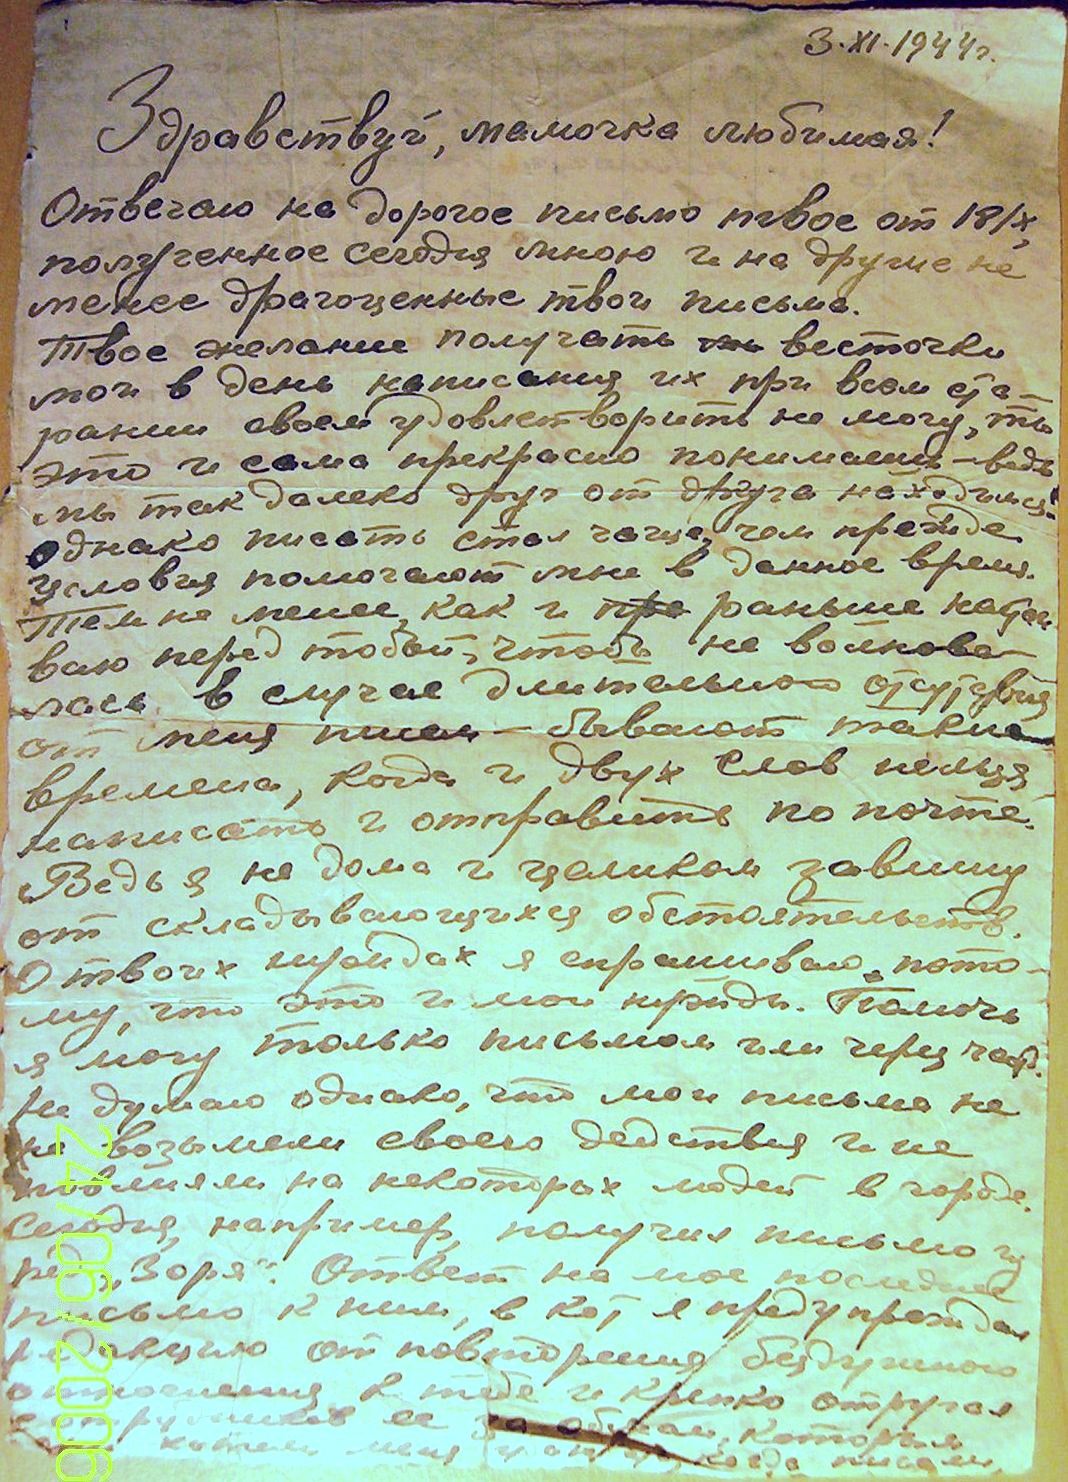 3·XI·1944г.
Здравствуй, мамочка любимая!
Отвечаю на дорогое письмо твое от 18/X,
полученное сегодня мною и на другие не
менее драгоценные твои письма.
Твое желание получать весточки
мои в день написания их при всем ста-
рании своем удовлетворить не могу, ты
это и сама прекрасно понимаешь – ведь
мы так далеко друг от друга находимся!
Однако писать стал чаще, чем прежде
условия помогают мне в данное время.
Тем не менее, как и раньше настаи
ваю перед тобой, чтобы не волнова-
лась в случае длительного отсутствия
от меня писем – бывают такие
времена, когда и двух слов нельзя
написать и отправить по почте.
Ведь я не дома и целиком завишу
от складывающихся обстоятельств.
О твоих нуждах я спрашиваю, пото-
му, что это и мои нужды. Помочь
я могу только письмом или через
Не думаю однако, что мои письма не
не возымели своего действия и не
повлияли на некоторых людей в городе.
Сегодня, например, получил письмо из
ред. „Заря“. Ответ на мое последнее
письмо к ним, в кот я предупреждал
редакцию от повторения бездушного
отношения к тебе и крепко отругал
сотрудников ее за обман, которым
хотели меня когда писали,
24/06/2006